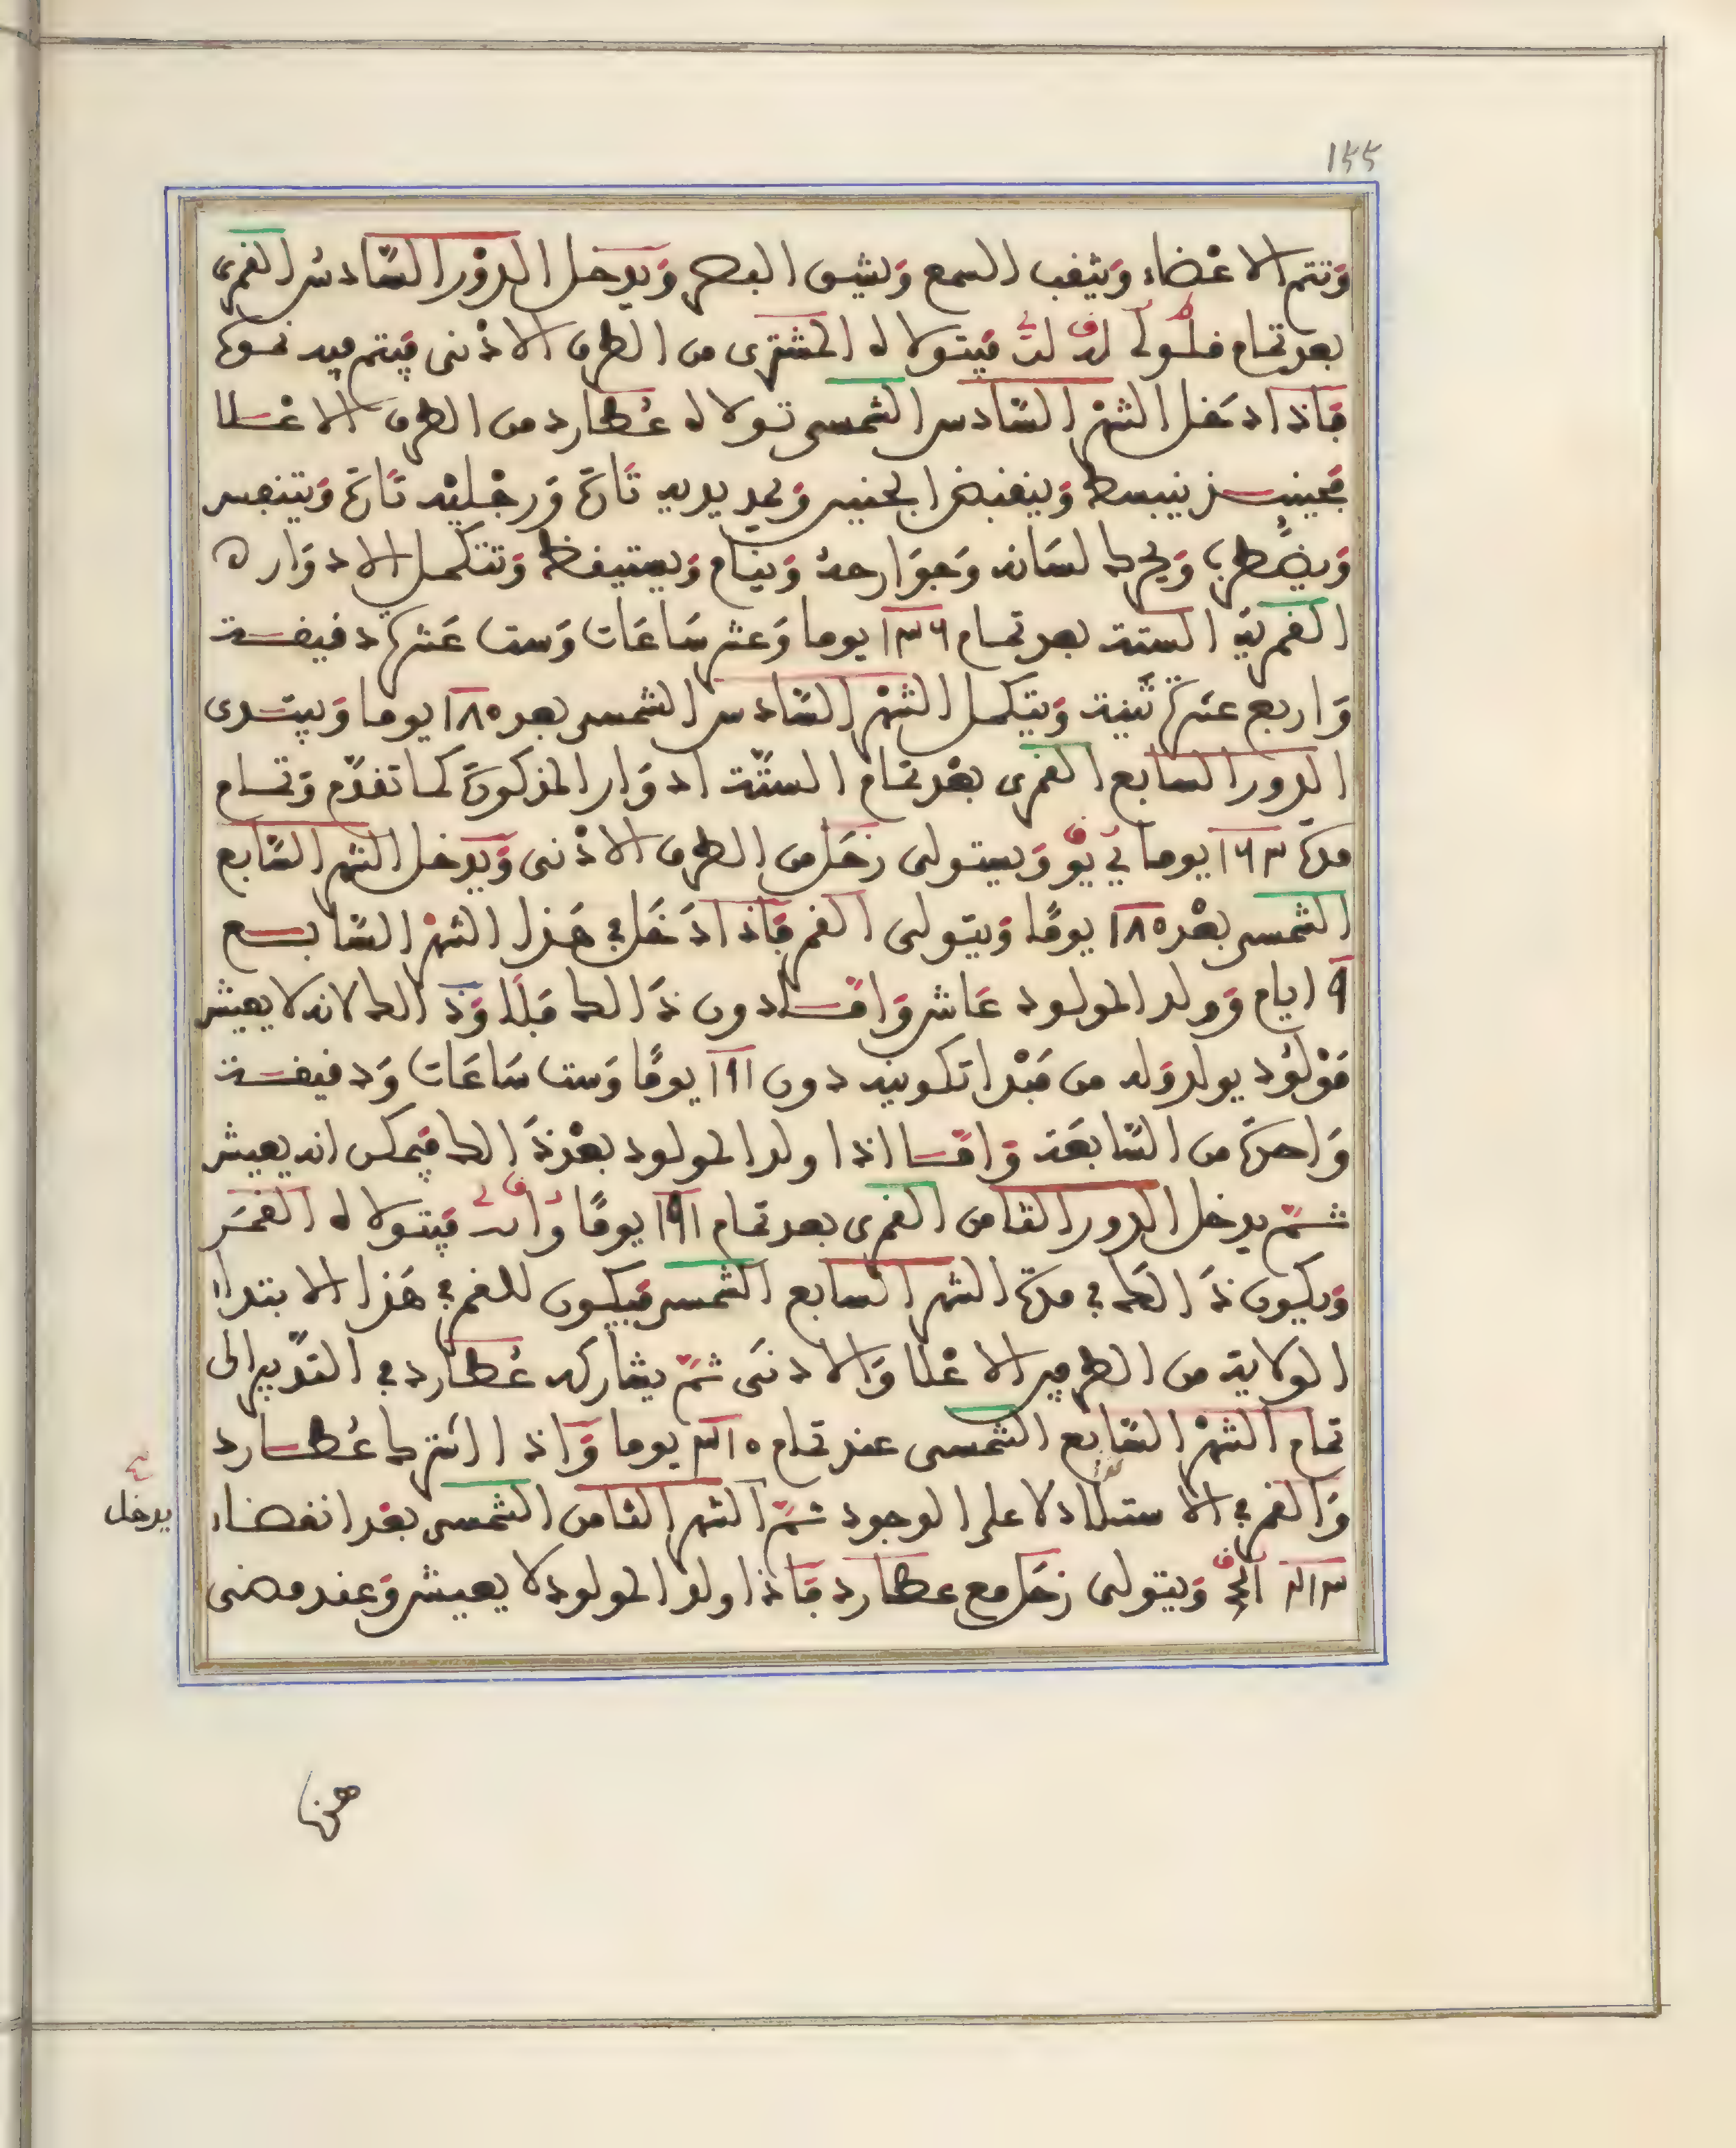 ١٥٥
وَتتم الاعْضاء وَيثقب السمع وَيشق البصر وَيدخل الدوْر السّادسُ القمرى
بعد تمام فيتولاه المشترى من الطرف الاذنى فيتم فيه نموه
فَاذا دخَل الشهْر السّادس الشمسى تولاه عُطارد من الطرف الاعْلا
فحينئذ ينبسط وَينقبض الجنين وَيمد يديه تَارة وَرجْليْه تَارة وَيتنفس
وَيضْطرب وَيحرك لسَانه وَجوَارحهُ وَينام وَيستيقظ وَتتكمل الادوَار ه
القمريّة الستة بعد تمام ١٣٦ يوما وَعشر سَاعَات وَست عَشرة دقيقة
وَاربع عشرة ثَنية وَيتكمل الشهْر السّادس الشمسى بعد ١٨٥ يوما وَيبتدى
الدور السابع القمرى بعْد تمام الستّة ادوَار المذكورَة كما تقدّم وَتمام
مدة ١٦٣ يوما وَيستولى زحَل من الطرف الاذنى وَيدخل الشهر السّابع
الشمسى بعْد ١٨٥ يومًا وَيتولى القمر فَاذا دَخَل في هَذا الشهْر السّابع
٩ ايام وَولد المولود عَاش وَامّا دون ذَالك فَلا وَذَالك لانه لا يعيش
مَوْلُود يولد وَله من مَبْدا تكوينه دون ١٩١ يومًا وَست سَاعَات وَدقيقة
وَاحدة من السّابعَة وَامّا اذا ولد المولود بعْد ذَالك فيمكن انه يعيش
ثمّ يدخل الدور الثامن القمرى بعد تمام ١٩١ يومًا فيتولاه القمَر
وَيكون ذَالكَ في مدة الشهر السابع الشمسى فيكون للقمر في هَذا الابتداء
الولاية من الطرفين الاعْلا وَالادنى ثمّ يشاركه عُطارد في التدْبير الى
تمام الشهْر السّابع الشمسى عند تمام ٢١٥ يوما وَاذا اشترك عُطارد
وَالقمر في الاستيلا دلا على الوجود ثمّ الشهر الثامن الشمسى بعْد انقضاء
يدخل
وَيتولى زحَل مع عطارد فَاذا ولد المولود لا يعيش وَعند مضى